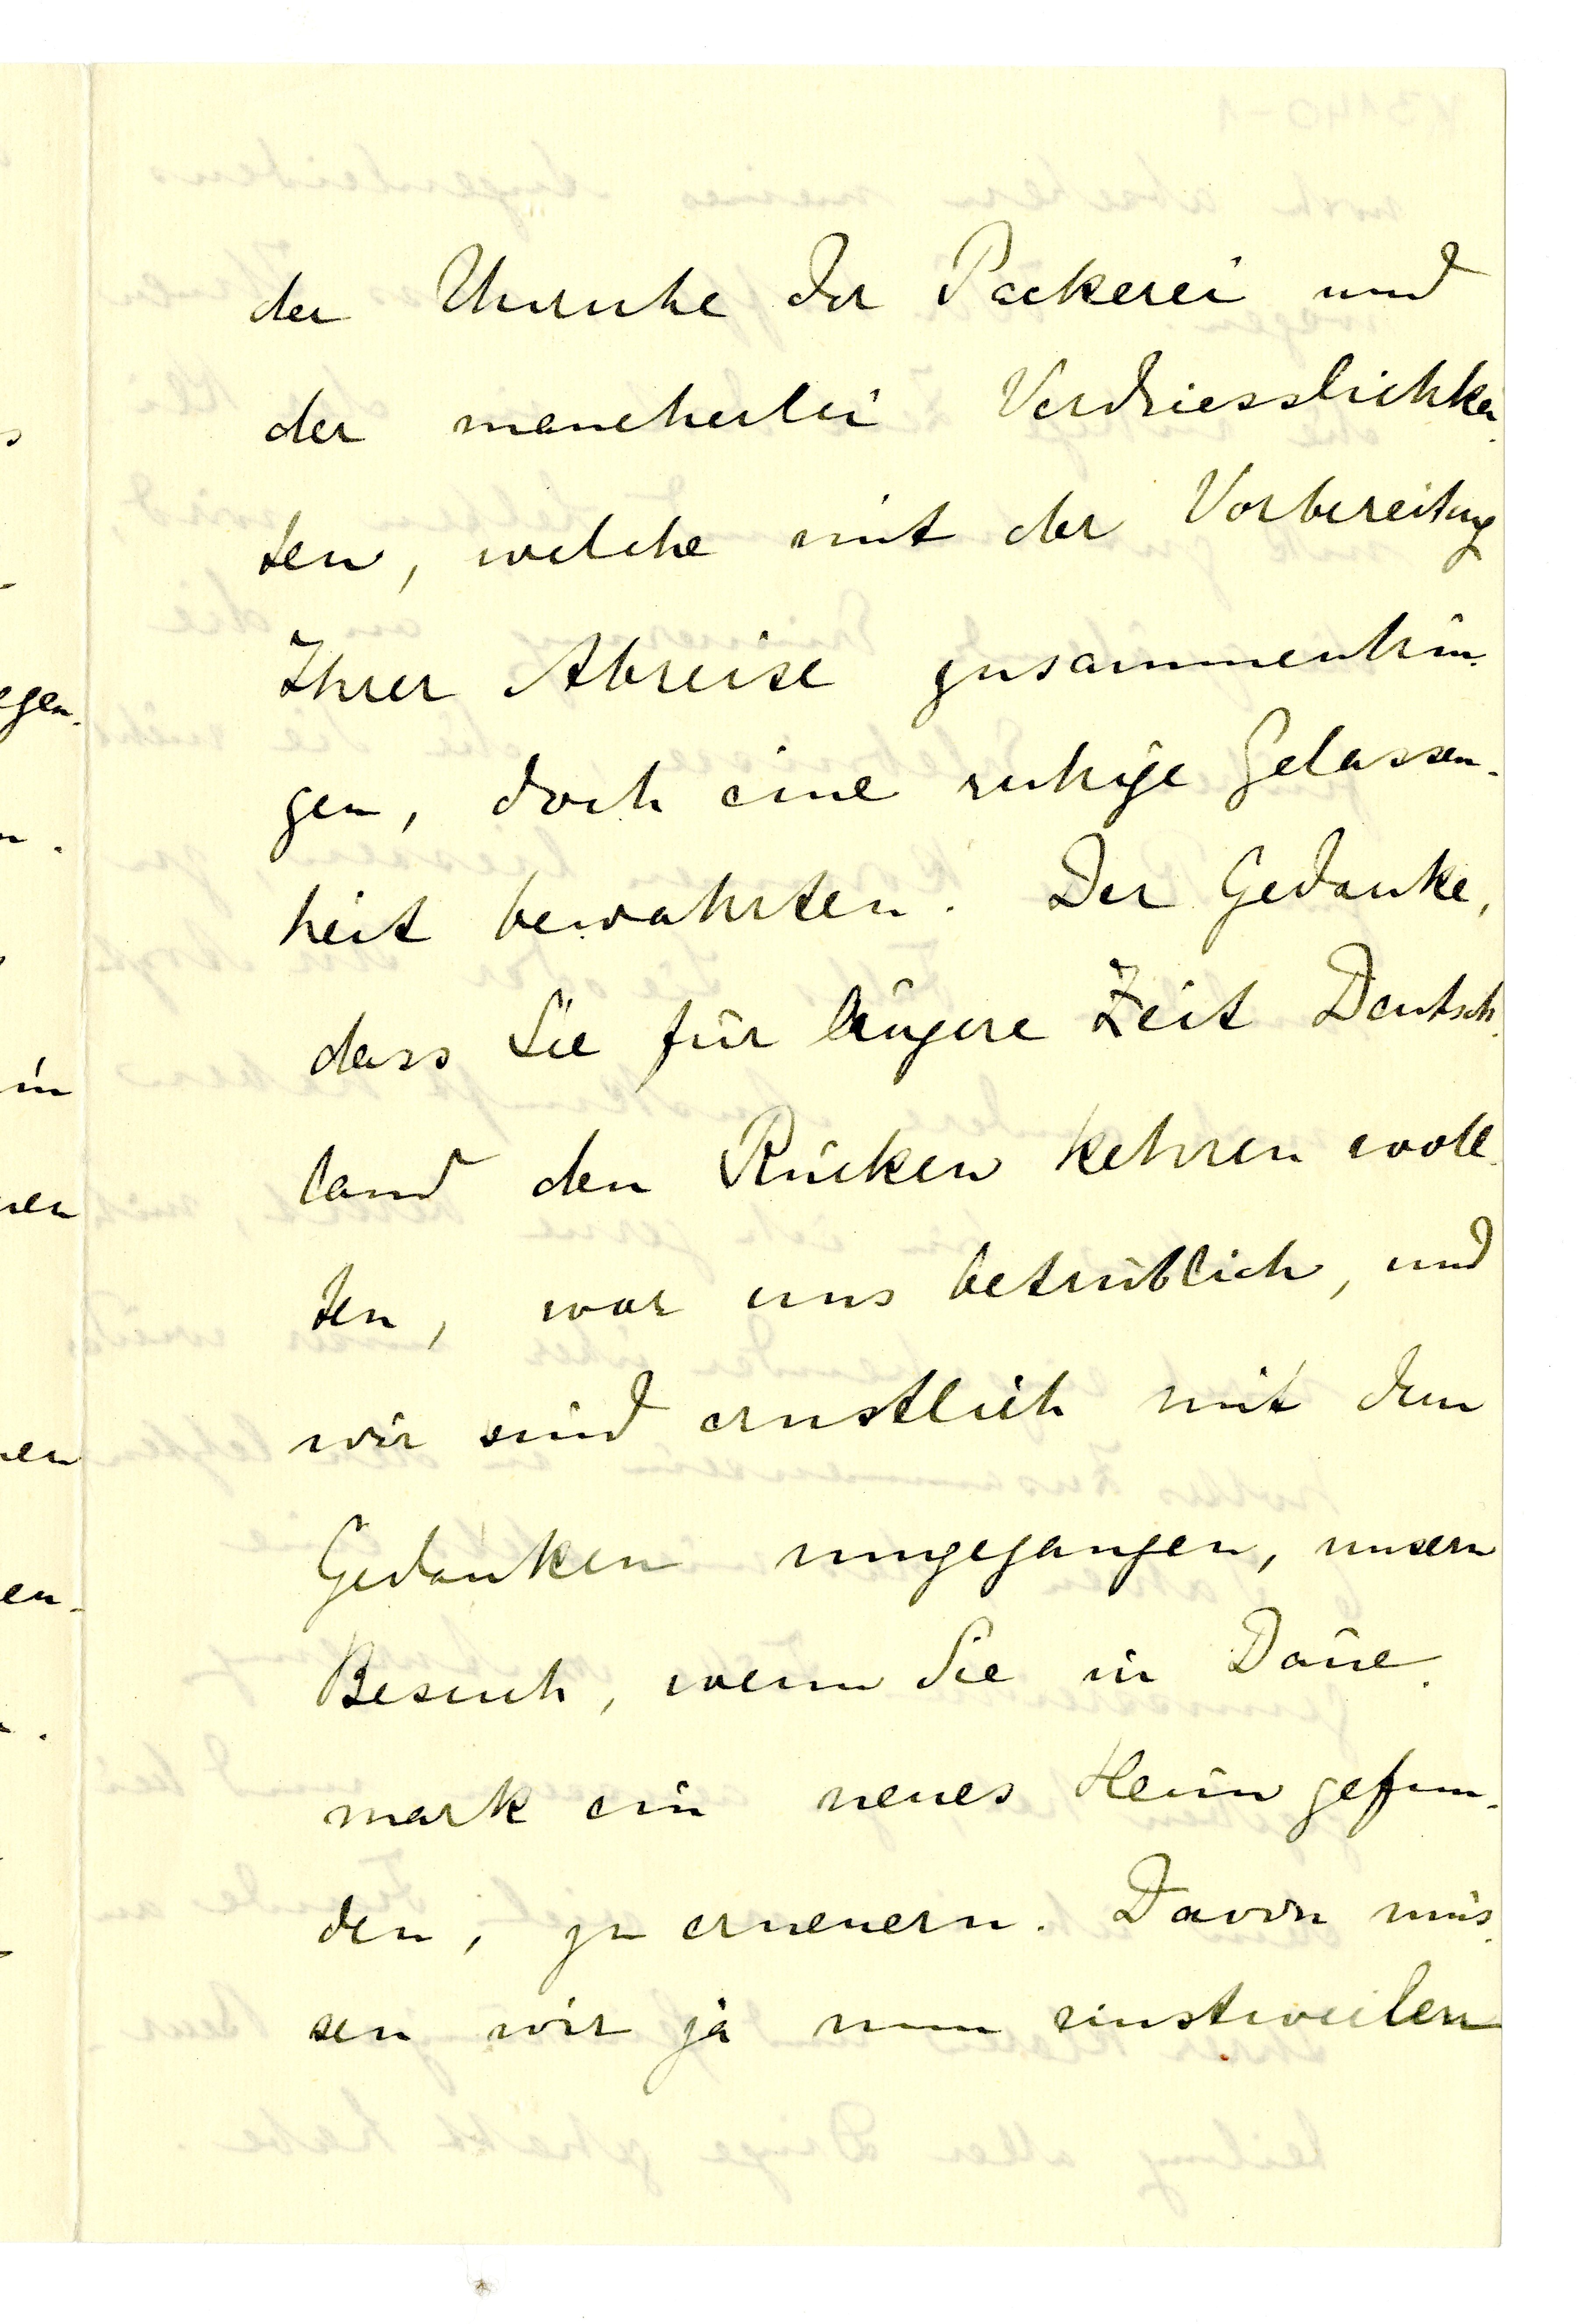 der Unruhe der Packerei und
der mancherlei Verdriesslichkei-
ten, welche mit der Vorbereitung
Ihrer Abreise zusammenhin-
gen, doch eine ruhige Gelassen-
heit bewahrten. Der Gedanke,
dass Sie für längere Zeit Deutsch-
land den Rücken kehren woll-
ten, war uns betrüblich, und
wir sind ernstlich mit dem
Gedanken umgegangen, unsern
Besuch, wenn Sie in Däne-
mark ein neues Heim gefun-
den, zu erneuern. Davon müs-
sen wir ja nun einstweilen